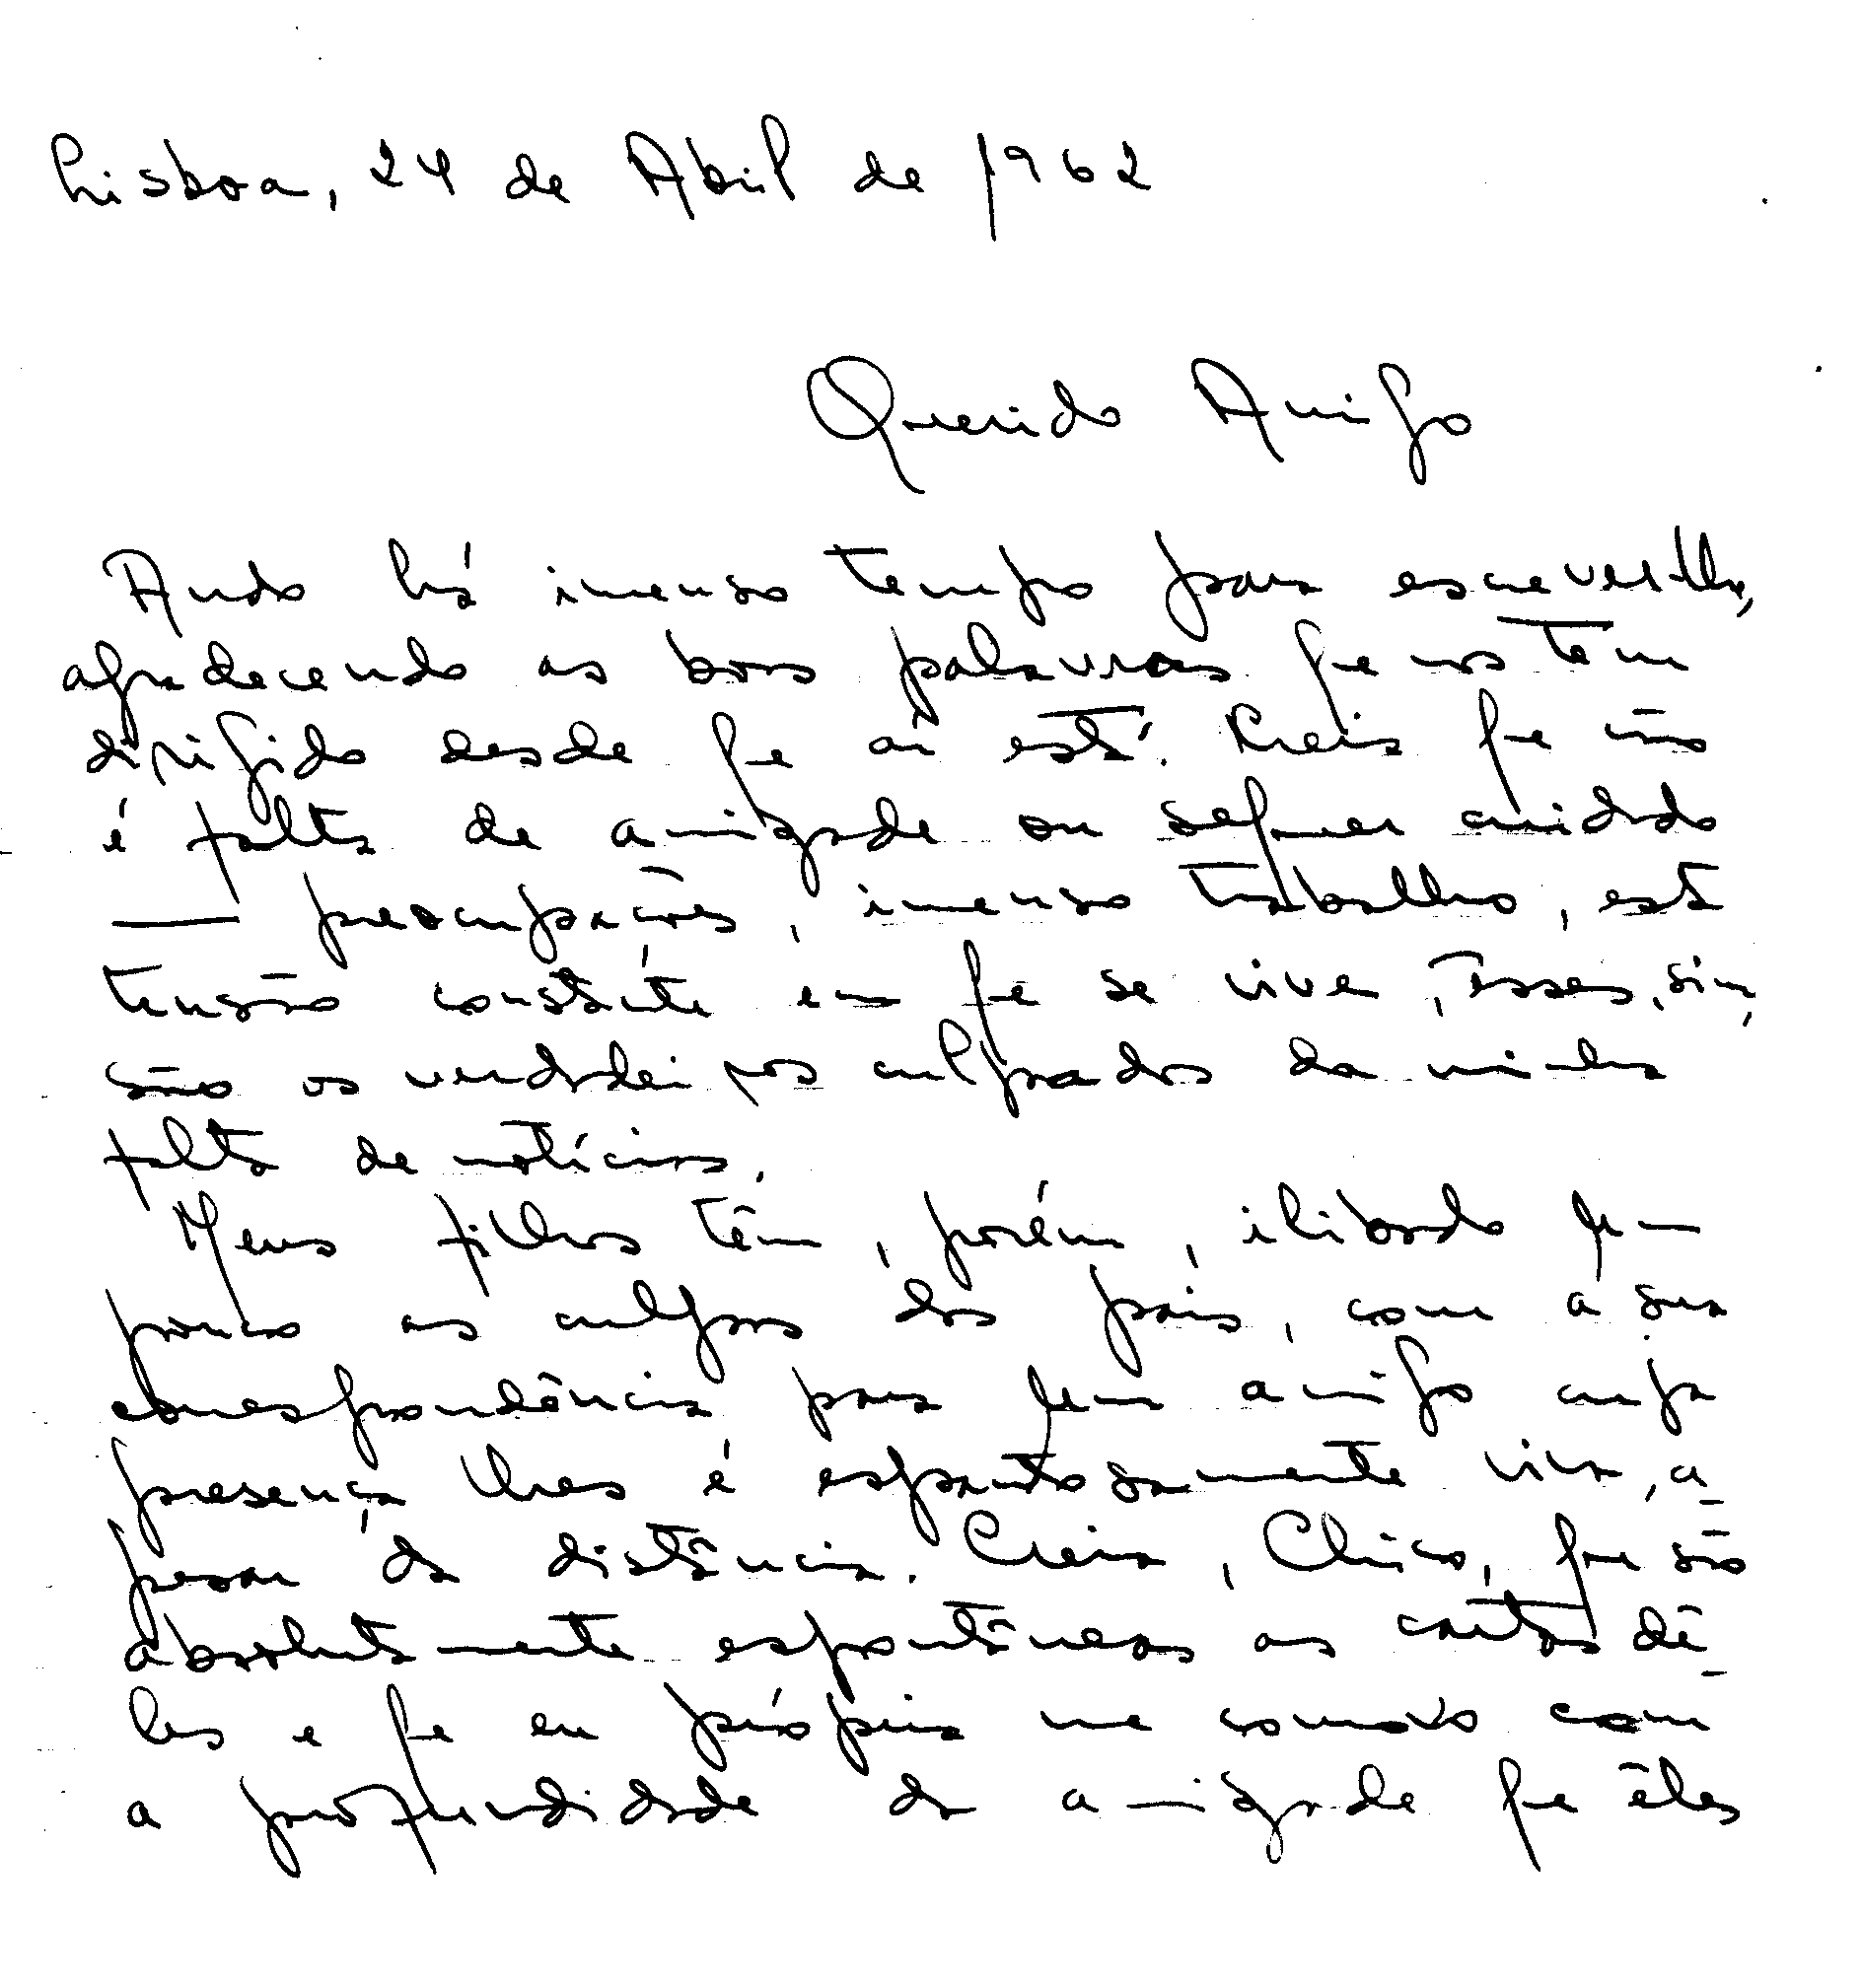 Lisboa, 24 de Abril de 1962
Querido Amigo
Ando há imenso tempo para escrever-lhe,
agradecendo as boas palavras que nos tem
dirigido desde que aí está. Creia que não
é falta de amizade ou sequer cuidado
— preocupações, imenso trabalho, esta
tensão constante em que se vive, êsses, sim,
são os verdadeiros culpados da minha
falta de notícias.
Meus filhos têm, porém, ilibado um
pouco as culpas dos pais, com a sua
correspondência para um amigo cuja
presença lhes é espantosamente viva, a-
pesar da distância. Creia, Chico, que são
absolutamente espontâneas as cartas dê-
les e que eu própria me comovo com
a profundidade da amizade que êles